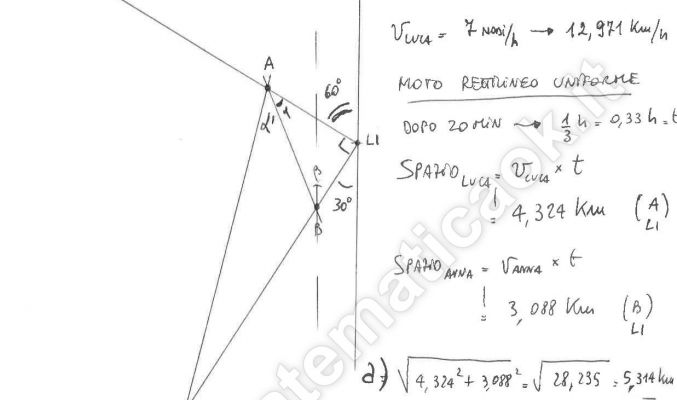 V LUCA = 7 NODI/h → 12,971 Km/h
MOTO RETTILINEO UNIFORME
DOPO 20 MIN → 1/3 h = 0,33 h = t
SPAZIO LUCA = V LUCA × t
= 4,324 Km (A LI)
SPAZIO ANNA = V ANNA × t
= 3,088 Km (B LI)
d = √4,324² + 3,088² = √28,235 = 5,314 Km
A
60°
α'
LI
β
30°
B
matematicaok.it